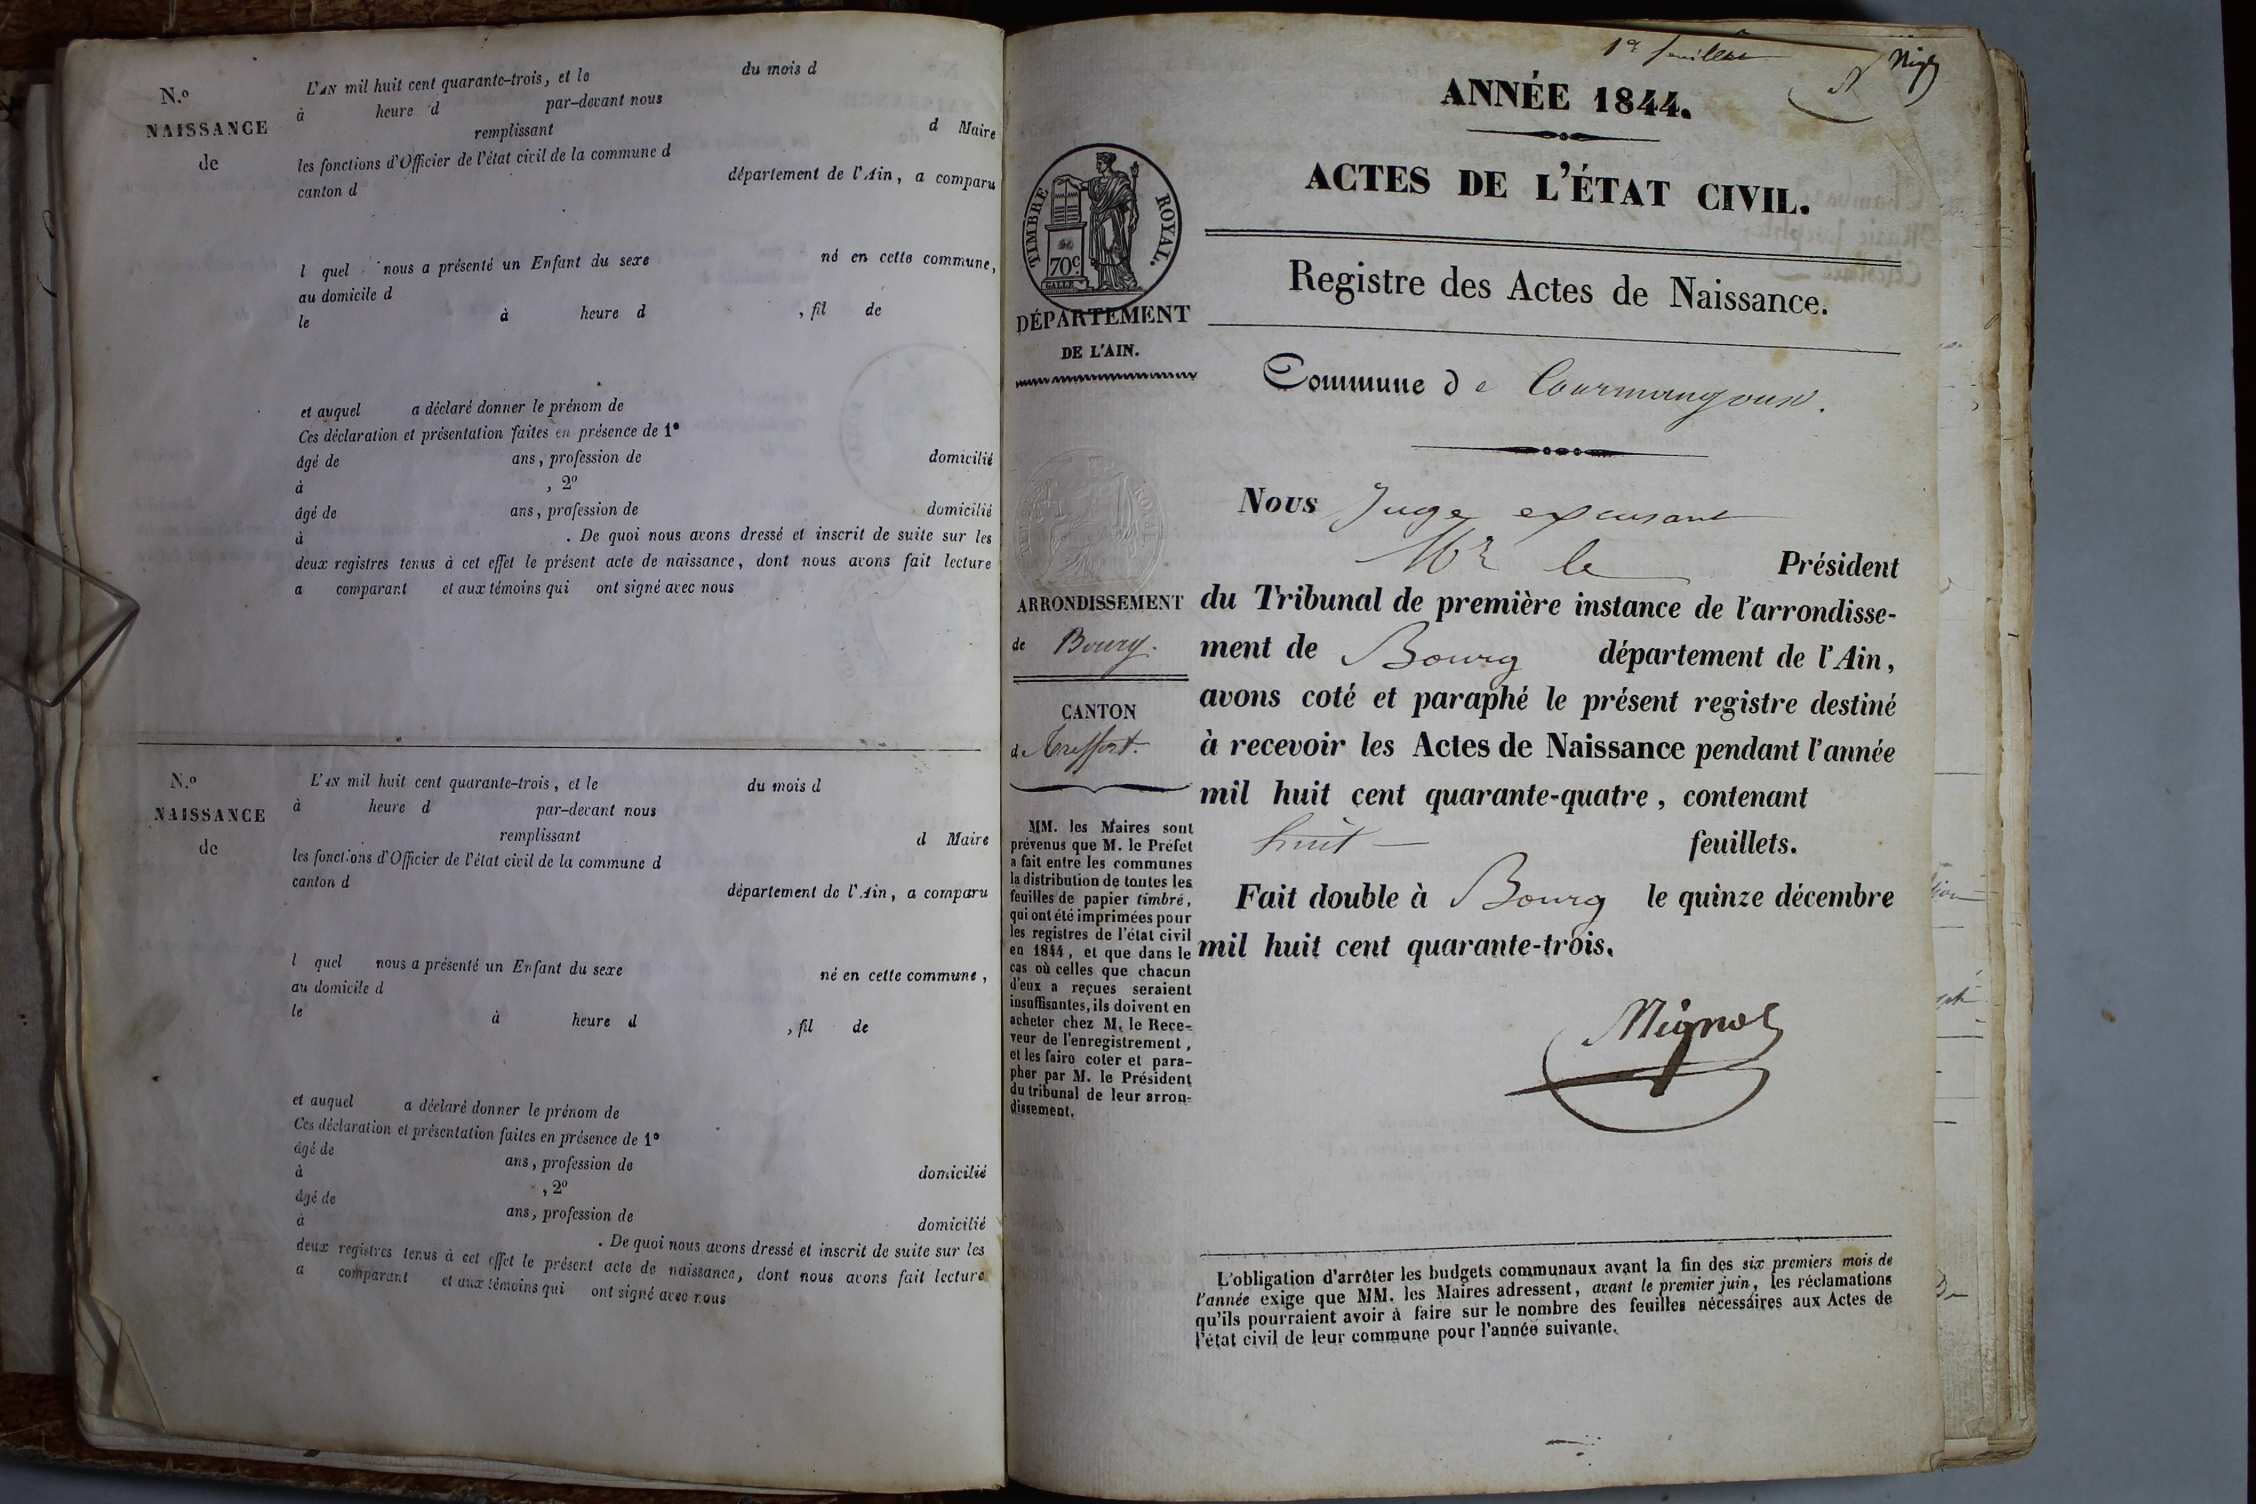 N.º
NAISSANCE
de
L'AN mil huit cent quarante-trois, et le du mois d
à heure d par-devant nous
remplissant d Maire
les fonctions d'Officier de l'état civil de la commune d
canton d département de l'Ain, a comparu
l quel nous a présenté un Enfant du sexe né en cette commune,
au domicile d
le à heure d , fil de
et auquel a déclaré donner le prénom de
Ces déclaration et présentation faites en présence de 1º
âgé de ans, profession de domicilié
à , 2º
âgé de ans, profession de domicilié
à . De quoi nous avons dressé et inscrit de suite sur les
deux registres tenus à cet effet le présent acte de naissance, dont nous avons fait lecture
a comparant et aux témoins qui ont signé avec nous
N.º
NAISSANCE
de
L'AN mil huit cent quarante-trois, et le du mois d
à heure d par-devant nous
remplissant d Maire
les fonctions d'Officier de l'état civil de la commune d
canton d département de l'Ain, a comparu
l quel nous a présenté un Enfant du sexe né en cette commune,
au domicile d
le à heure d , fil de
et auquel a déclaré donner le prénom de
Ces déclaration et présentation faites en présence de 1º
âgé de ans, profession de domicilié
à , 2º
âgé de ans, profession de domicilié
à . De quoi nous avons dressé et inscrit de suite sur les
deux registres tenus à cet effet le présent acte de naissance, dont nous avons fait lecture
a comparant et aux témoins qui ont signé avec nous
1er feuillet
ANNÉE 1844.
ACTES DE L'ÉTAT CIVIL.
TIMBRE ROYAL.
70c
Registre des Actes de Naissance.
DÉPARTEMENT
DE L'AIN.
Commune de Courmangoux.
Nous Juge excusant
Mr le Président
du Tribunal de première instance de l'arrondisse-
ment de Bourg département de l'Ain,
avons coté et paraphé le présent registre destiné
à recevoir les Actes de Naissance pendant l'année
mil huit cent quarante-quatre, contenant
huit feuillets.
Fait double à Bourg le quinze décembre
mil huit cent quarante-trois.
Mignot
ARRONDISSEMENT
de Bourg.
CANTON
de Treffort.
MM. les Maires sont
prévenus que M. le Préfet
a fait entre les communes
la distribution de toutes les
feuilles de papier timbré,
qui ont été imprimées pour
les registres de l'état civil
en 1844, et que dans le
cas où celles que chacun
d'eux a reçues seraient
insuffisantes, ils doivent en
acheter chez M. le Rece-
veur de l'enregistrement,
et les faire coter et para-
pher par M. le Président
du tribunal de leur arron-
dissement.
L'obligation d'arrêter les budgets communaux avant la fin des six premiers mois de
l'année exige que MM. les Maires adressent, avant le premier juin, les réclamations
qu'ils pourraient avoir à faire sur le nombre des feuilles nécessaires aux Actes de
l'état civil de leur commune pour l'année suivante.